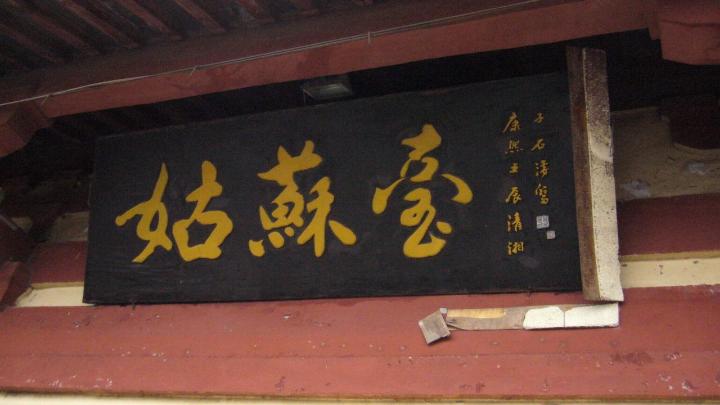 姑蘇臺
康熙壬辰清湘
子石濤